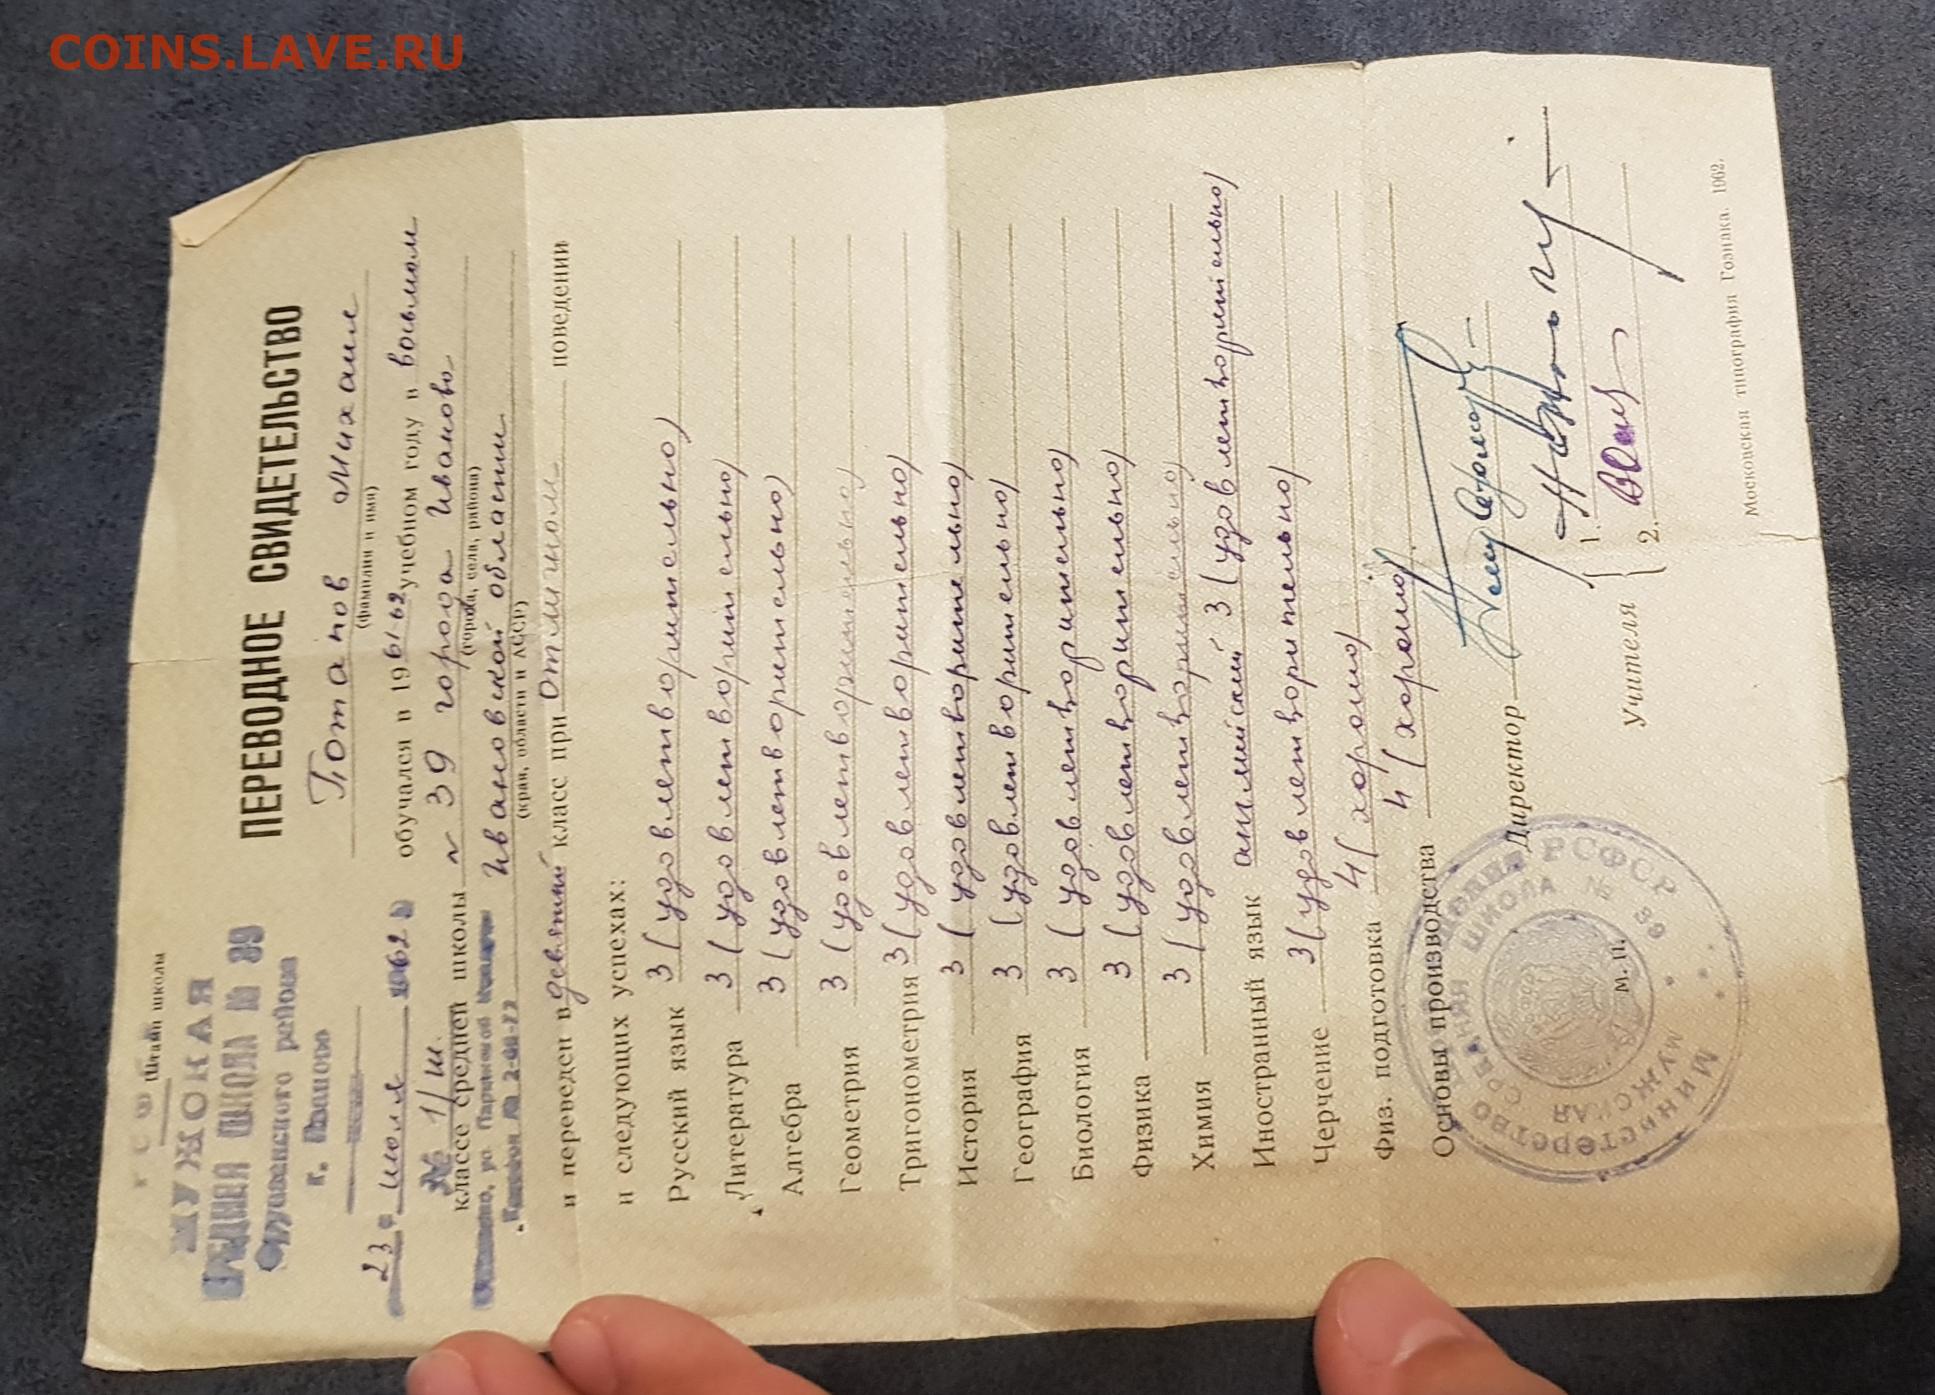 COINS.LAVE.RU
Штамп школы
МУЖСКАЯ
СРЕДНЯЯ ШКОЛА № 39
Фрунзенского района
г. Иваново
23 июля 1962
№ 1/ш.
ПЕРЕВОДНОЕ СВИДЕТЕЛЬСТВО
Потапов Михаил
(фамилия и имя)
обучался в 1961-62 учебном году в восьмом
классе средней школы № 39 города Иваново
(города, села, района)
Ивановской области
(края, области и АССР)
и переведен в девятый класс при отличном поведении
и следующих успехах:
Русский язык 3 (удовлетворительно)
Литература 3 (удовлетворительно)
Алгебра 3 (удовлетворительно)
Геометрия 3 (удовлетворительно)
Тригонометрия 3 (удовлетворительно)
История 3 (удовлетворительно)
География 3 (удовлетворительно)
Биология 3 (удовлетворительно)
Физика 3 (удовлетворительно)
Химия 3 (удовлетворительно)
Иностранный язык английский 3 (удовлетворительно)
Черчение 3 (удовлетворительно)
Физ. подготовка 4 (хорошо)
Основы производства 4 (хорошо)
Директор
Учителя
1.
2.
М. П.
Министерство РСФСР
МУЖСКАЯ СРЕДНЯЯ ШКОЛА № 39
Московская типография Гознака. 1962.